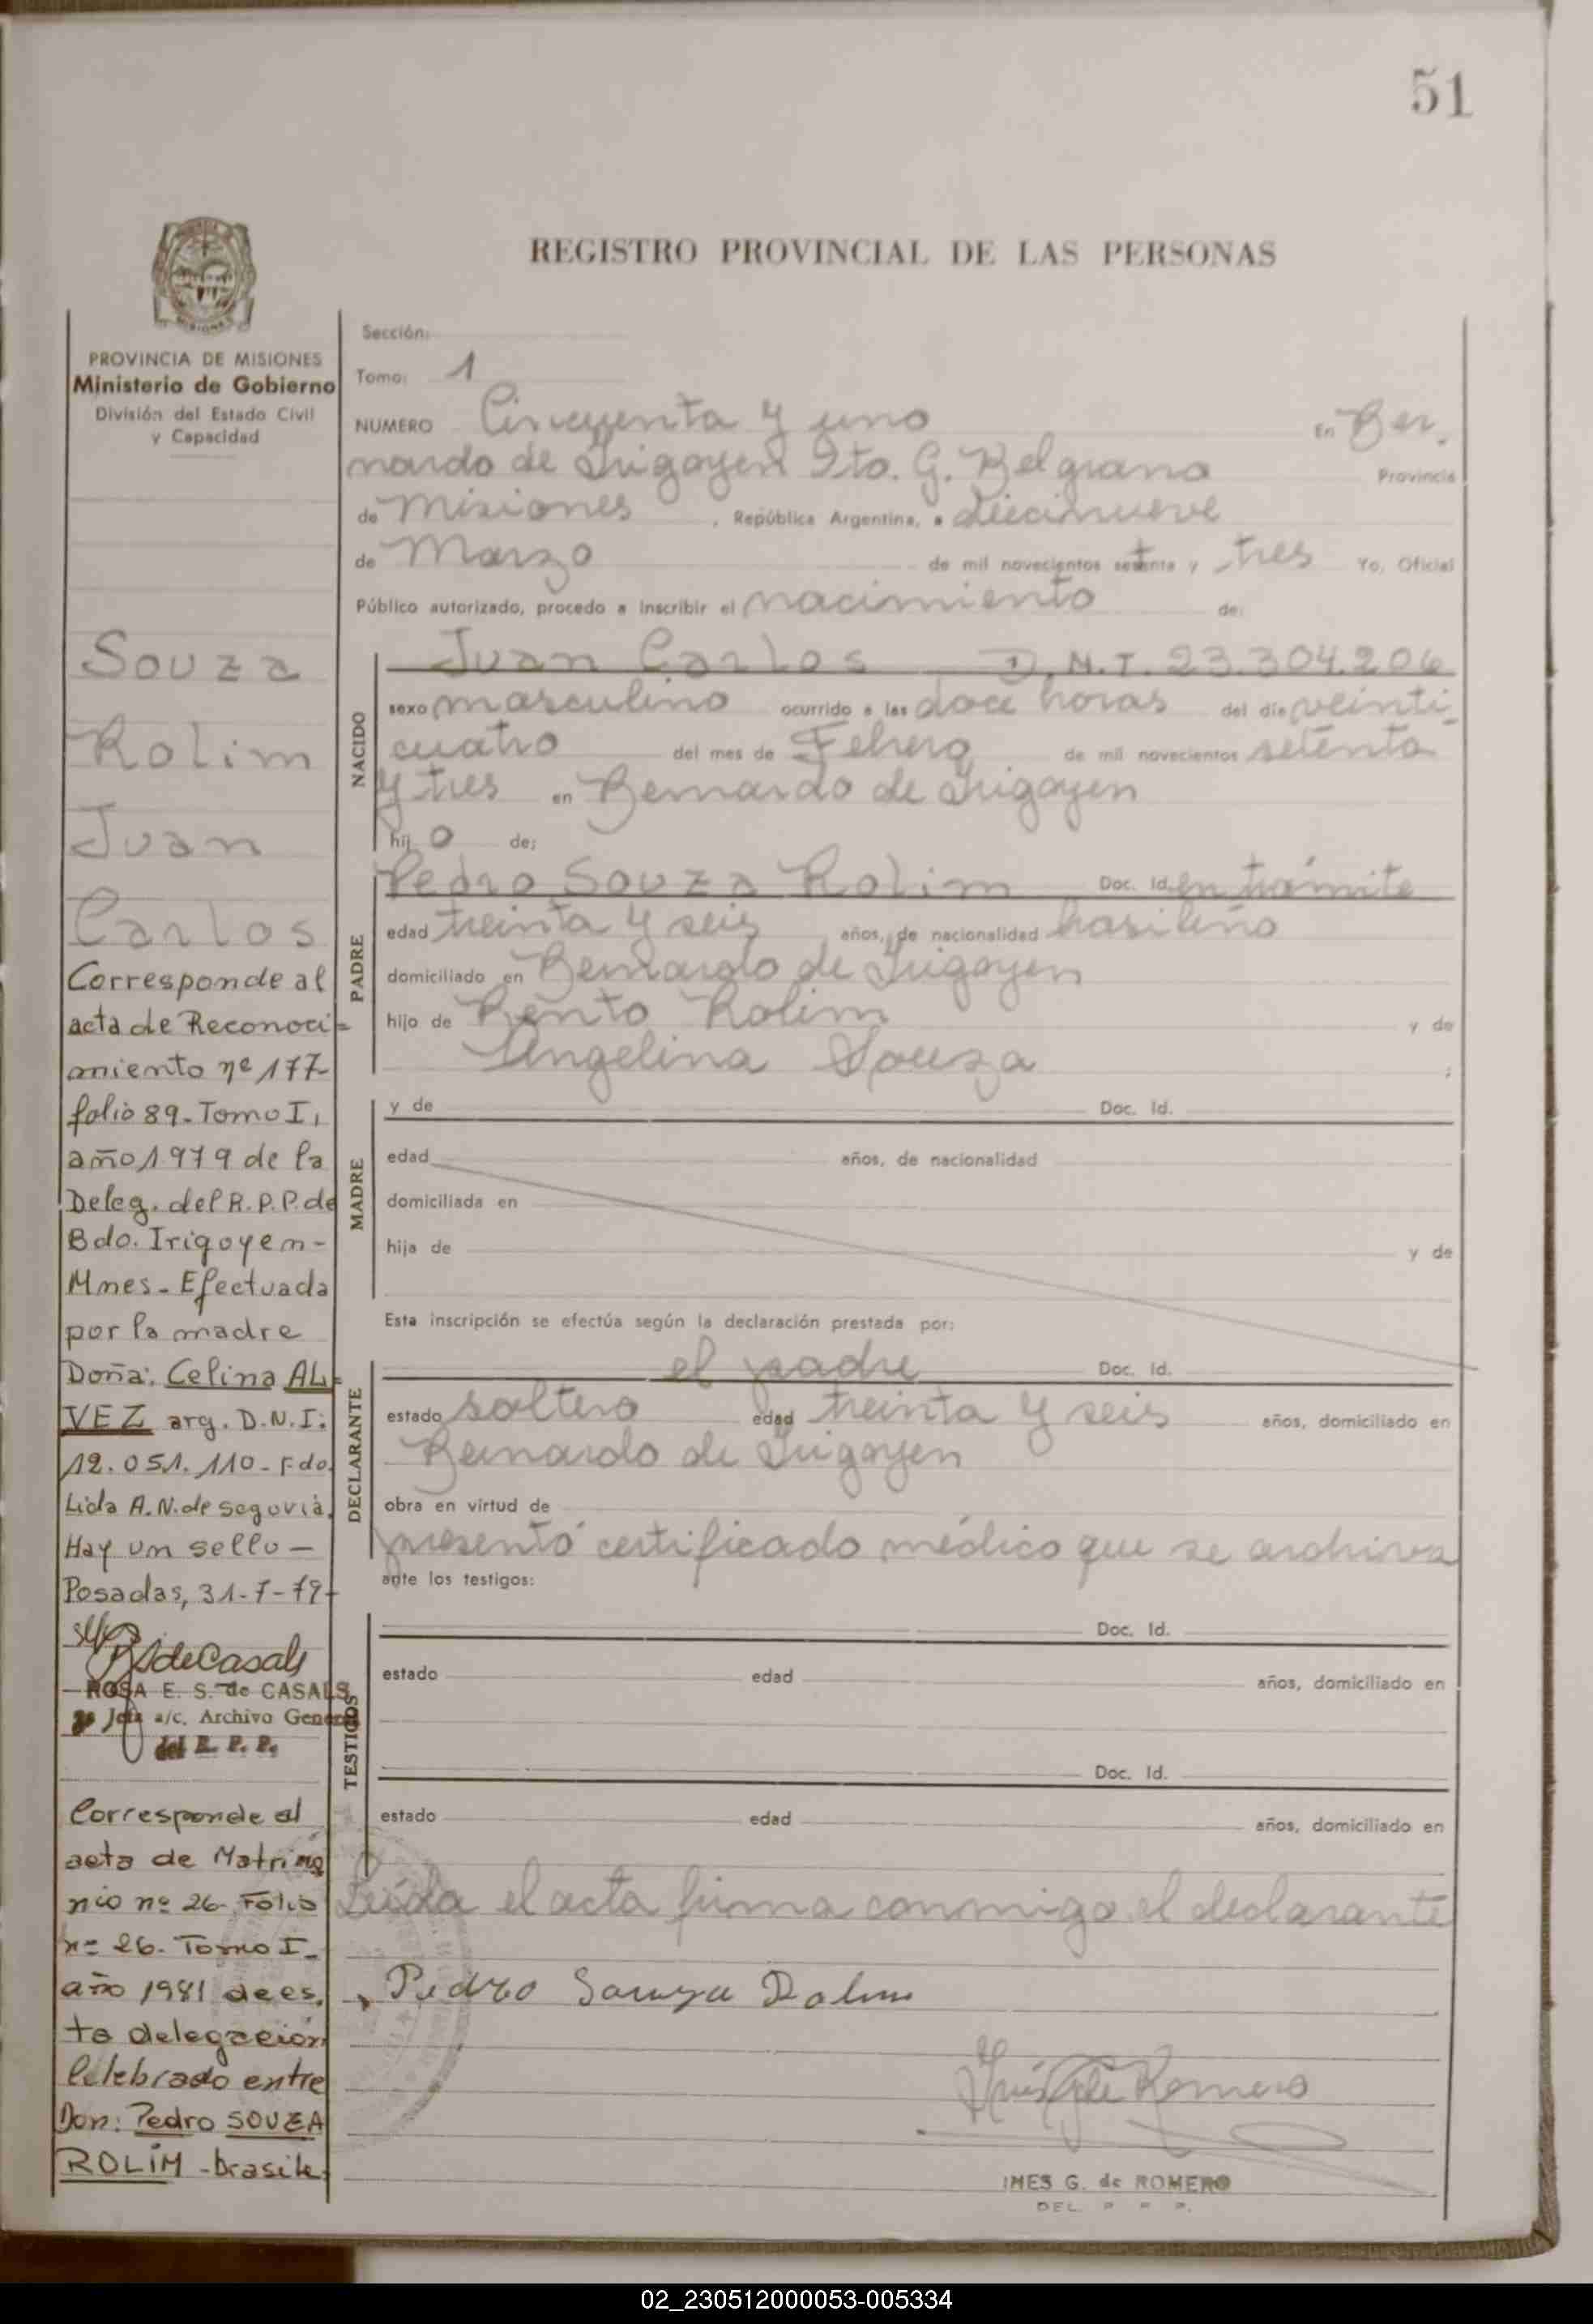 51
REGISTRO PROVINCIAL DE LAS PERSONAS
PROVINCIA DE MISIONES
Ministerio de Gobierno
División del Estado Civil
y Capacidad
Souza
Rolim
Juan
Carlos
Corresponde al
acta de Reconoci=
miento nº 177
folio 89-Tomo I,
año 1979 de la
Deleg. del R.P.P. de
Bdo. Irigoyen-
Mnes-Efectuada
por la madre
Doña: Celina AL=
VEZ arg. D.N.I:
12.051.110-Fdo
Lida A.N. de Segovia,
Hay un sello-
Posadas, 31-7-79-
ROSA E. S. de CASALS
Jefe a/c. Archivo General
del R. P. P.
Corresponde al
acta de Matrimo
nio nº 26-Folio
nº 26-Tomo I-
año 1981 de es,
ta delegación
Celebrado entre
Don: Pedro SOUZA
ROLIM -brasile,
Sección:
Tomo: 1
NUMERO Cincuenta y uno En Ber.
nardo de Irigoyen Dto. G. Belgrano Provincia
de Misiones, República Argentina, a diecinueve
de Marzo de mil novecientos setenta y tres Yo, Oficial
Público autorizado, procedo a inscribir el nacimiento de:
NACIDO
Juan Carlos D.N.I. 23.304.206
sexo masculino ocurrido a las doce horas del día veinti_
cuatro del mes de Febrero de mil novecientos setenta
y tres en Bernardo de Irigoyen
hijo de:
PADRE
Pedro Souza Rolim Doc. Id. en trámite
edad treinta y seis años, de nacionalidad brasileño
domiciliado en Bernardo de Irigoyen
hijo de Bento Rolim y de
Angelina Souza ;
MADRE
y de Doc. Id.
edad años, de nacionalidad
domiciliada en
hija de y de
Esta inscripción se efectúa según la declaración prestada por:
DECLARANTE
el padre Doc. Id.
estado soltero edad treinta y seis años, domiciliado en
Bernardo de Irigoyen
obra en virtud de
presentó certificado médico que se archiva
ante los testigos:
TESTIGOS
Doc. Id.
estado edad años, domiciliado en
Doc. Id.
estado edad años, domiciliado en
Leída el acta firma conmigo el declarante
Pedro Souza Rolim
Romero
INES G. de ROMERO
02_230512000053-005334